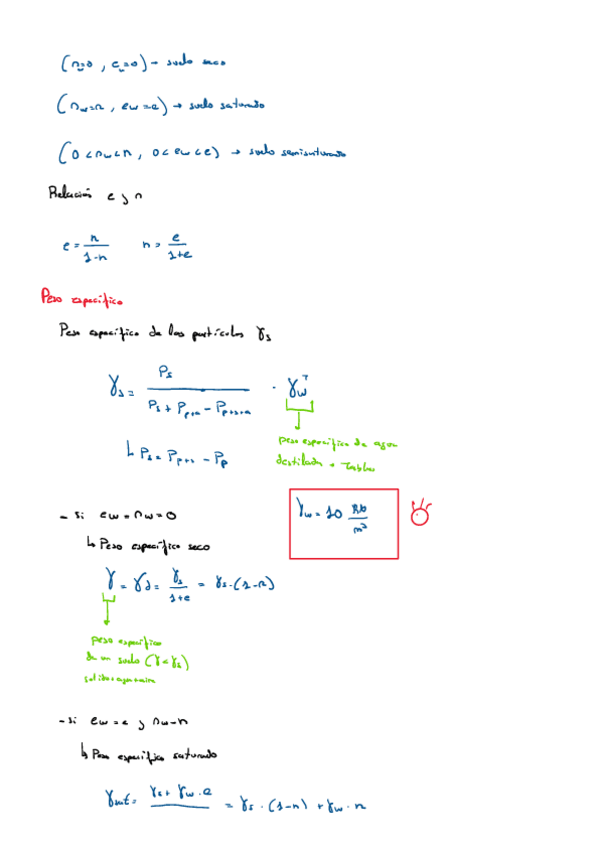 (n=0 , e=0) → suelo seco
(nw=n , ew=e) → suelo saturado
(0<nw<n , 0<ew<e) → suelo semisaturado
Relación e y n
e = n/(1-n)    n = e/(1+e)
Peso específico
Peso específico de las partículas γs
γs = Ps/(Ps + Pp+a - Pp+s+a) · γw^T
↳ Ps = Pp+s - Pp
peso específico de agua
destilada → Tablas
γw = 10 kN/m³
- si ew=nw=0
↳ Peso específico seco
γ = γd = γs/(1+e) = γs·(1-n)
peso específico
de un suelo (γ<γs)
- si ew=e y nw=n
↳ Peso específico saturado
γsat = γs + γw·e = γs·(1-n) + γw·n